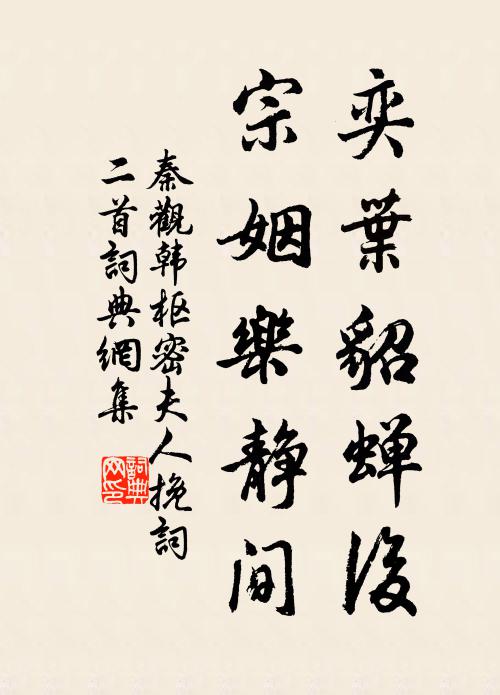 奕葉貂蝉後
宗姻樂静间
秦觀韩枢密夫人挽詞
二首詞典網集
詞典
网印